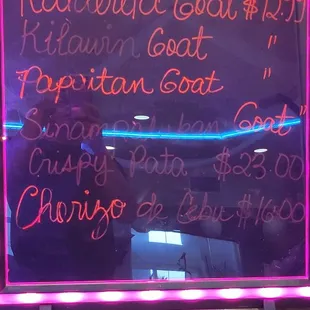 Kaldereta Goat $12.99
Kilawin Goat "
Papaitan Goat "
Sinampalukan Goat "
Crispy Pata $23.00
Chorizo de Cebu $16.00